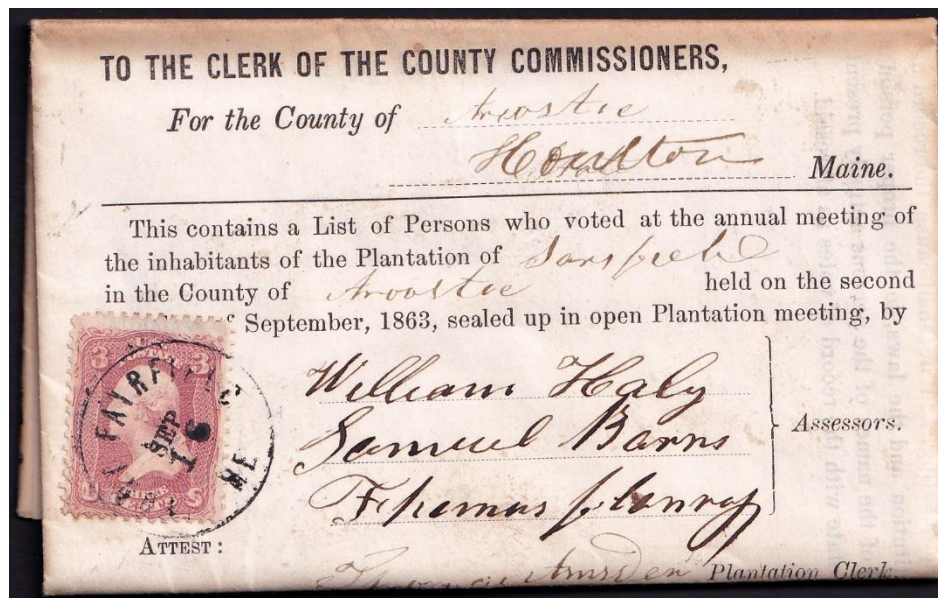 TO THE CLERK OF THE COUNTY COMMISSIONERS,
For the County of Aroostic
Houlton Maine.
This contains a List of Persons who voted at the annual meeting of
the inhabitants of the Plantation of Sarsfield
in the County of Aroostic held on the second
September, 1863, sealed up in open Plantation meeting, by
William Haly
Samuel Barns
Assessors.
Thomas
3 3
FAIRFIELD
SEP
16
ME
U S
ATTEST:
Amsden Plantation Clerk.